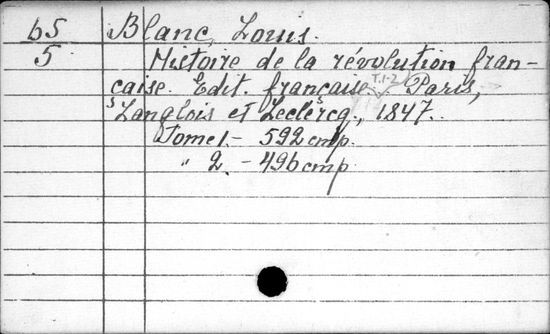 65 Blanc, Louis.
5 Histoire de la révolution fran-
çaise. Edit. française. T.1-2 Paris,
Langlois et Leclercq, 1847.
Tome 1. - 592 стр.
" 2. - 496 стр.